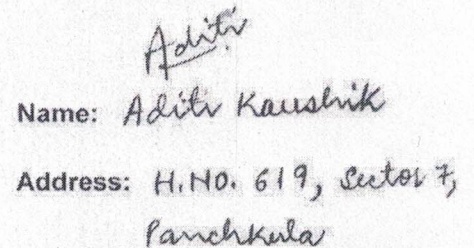 Aditi
Name: Aditi Kaushik
Address: H.NO. 619, Sector 7,
Panchkula